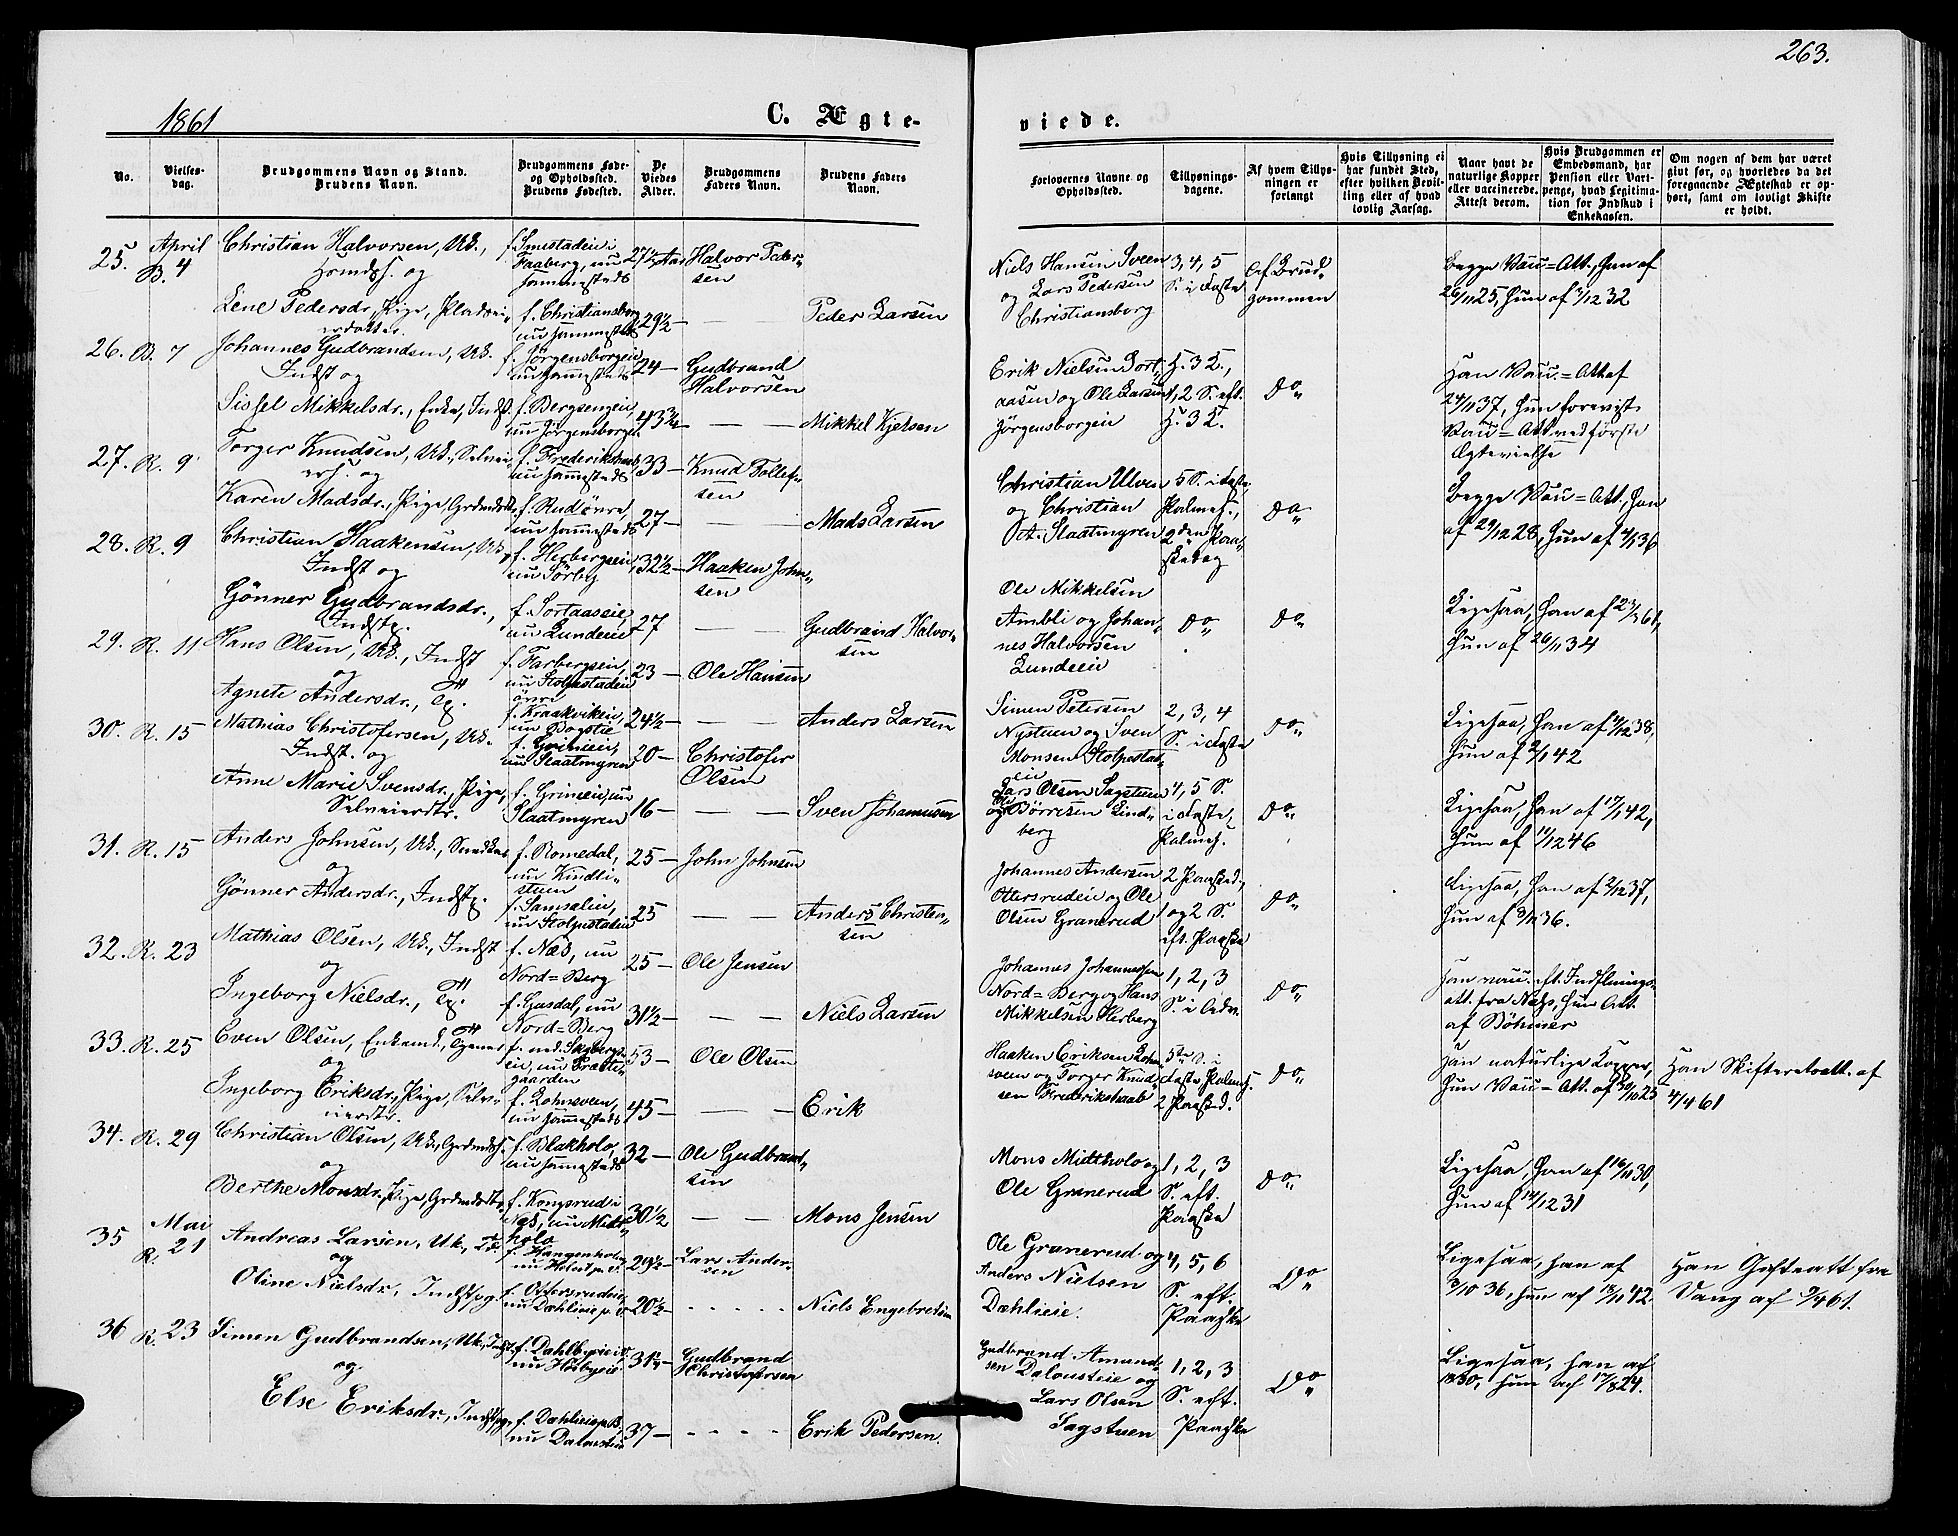 263.
1861
C. Ægte-
viede.
No.
Vielses-
dag.
Brudgommens Navn og Stand.
Brudens Navn.
Brudgommens Føde-
og Opholdssted.
Brudens Fødested.
De
Viedes
Alder.
Brudgommens
Faders Navn.
Brudens Faders
Navn.
Forlovernes Navne og
Opholdssted.
Tillysnings-
dagene.
Af hvem Tillys-
ningen er
forlangt
Hvis Tillysning ei
har fundet Sted,
efter hvilken Bevil-
ling eller af hvad
lovlig Aarsag.
Naar havt de
naturlige Kopper
eller vaccinerede.
Attest derom.
Hvis Brudgommen er
Embedsmand, har
Pension eller Vart-
penge, hvad Legitima-
tion for Indskud i
Enkekassen.
Om nogen af dem har været
givt før, og hvorledes da det
foregaaende Ægteskab er op-
hørt, samt om lovligt Skifte
er holdt.
25.
April
B. 4
Christian Halvorsen, Uk.,
og
Lene Pedersdr., Pige,
Faaberg, nu
f. Christiansborg
27½ Aar
29½ —
Halvor Peder-
sen
Peder Larsen
Niels Hansen Sveen
og Lars Pedersen
Christiansborg
3, 4, 5
S. i Faste
Af Brud-
gommen
Begge Vac.=Att., han af
26/11 25, hun af 7/12 32
26. B. 7
Johannes Gudbrandsen, Uk.
Indst og
Sissel Mikkelsdr., Enke, Indst.
f. Jørgensborgeie
f. Bergsengeie,
nu Jørgensborgei.
24 —
43¾ —
Gudbrand
Halvorsen
Mikkel Kjelsen
Erik Nielsen Sort-
aasen og Ole Larsen
Jørgensborgeie
H. 3 K.,
1, 2 S. eft.
H. 3 K.
Do
Han Vac.=Att af
24/11 37, hun forevist
Vac=Att ved første
Ægtevielse
27. R. 9
Torger Knudsen, Uk., Selvei-
og
Karen Madsdr., Pige,
f. Frederikshaab
f. Rud øvre,
33 —
27 —
Knud Tollef-
sen
Mads Larsen
Christian Ulven
og Christian
A. Slaatmyren
5 S. i Faste,
Palmes.,
2den Paa-
skedag
Do
Begge Vac=Att., han
af 29/12 28, hun af 4/11 36
28. R. 9
Christian Haakensen, Uk,
Indst og
Gønner Gudbrandsdr.,
Indstp.
f. Herbergseie,
nu Sørby
f. Sortaaseie,
nu Lundeeie
32½ —
27
Haaken John-
sen
Gudbrand Halvor-
sen
Ole Mikkelsen
Ambli og Johan-
nes Halvorsen
Lundeeie
Do
Do
Ligesaa, han af 23/3 61,
hun af 26/11 34
29. R. 11
Hans Olsen, Uk., Indst
og
Agnete Andersdr., Tp.
f. Farbergseie,
nu Stolpestadeie
øvre
f. Kraakvikeie,
nu Bagstie
23 —
24½ —
Ole Hansen
Anders Larsen
Simen Petersen
Nystuen og Sven
Monsen Stolpestad-
eie
2, 3, 4
S. i Faste
Do
Ligesaa, han af 4/12 38,
hun af 2/1 42
30. R. 15
Mathias Christofersen, Uk.
Indst. og
Anne Marie Svensdr., Pige,
Selveierdtr.
f. Grimeeie,
nu Slaatmyren
f. Grimeeie, nu
Slaatmyren
20 —
16 —
Christofer
Olsen
Sven Johannesen
Lars Olsen Sagstuen
og Ole Børresen Lind-
berg
4, 5 S.
i Faste,
Palmes.
Do
Ligesaa, han af 17/1 42,
hun af 14/12 46
31. R. 15
Anders Johnsen, Uk.,
og
Gønner Andersdr., Indstp.
f. Romedal,
nu Kindli-
stuen
f. Samsaleie,
nu Stolpestadeie
25 —
25
John Johnsen
Anders Christen-
sen
Johannes Andersen
Ottersrudeie og Ole
Olsen Granerud
2 Paasked.,
1 og 2 S.
eft. Paaske
Do
Ligesaa, han af 2/12 37,
hun af 3/11 36.
32. R. 23
Mathias Olsen, Uk., Indst
og
Ingeborg Nielsdr., Tp.
f. Næs, nu
Nord=Berg
f. Gusdal, nu
Nord=Berg
25 —
31½ —
Ole Jensen
Niels Larsen
Johannes Johannessen
Nord=Berg og Hans
Mikkelsen Herberg
1, 2, 3
S. i Adv.
Do
Han vac. eft. Indflytnings-
att. fra Næs, hun Att
af Bøhmer
33. R. 25
Even Olsen, Enkemd.,
og
Ingeborg Eriksdr., Pige, Selv-
eierdtr.
f. ned. Skyberg-
eie, nu Præste-
gaarden
f. Lohnsveen,
53 —
45 —
Ole Olsen
Erik
Haaken Eriksen Lohn-
sveen og Torger Knud-
sen Frederikshaab
5te S. i
Faste, Palmes.
2 Paasked.
Do
Han naturlige Kopper,
hun Vac=Att. af 30/10 25
Han Skifteretsatt. af
4/4 61
34. R. 29
Christian Olsen, Uk.,
og
Berthe Monsdr., Pige,
f. Blakholo,
f. Kongsrud i
Næs, nu Midt-
holo
32 —
30½
Ole Gudbrand-
sen
Mons Jensen
Mons Midtholo og
Ole Granerud
1, 2, 3
S. eft.
Paaske
Do
Ligesaa, han af 16/11 30,
hun af 14/12 31
35
Mai
R. 21
Andreas Larsen, Uk.,
og
Oline Nielsdr., Indstpg.
f. Ottersrudeie,
29½ —
20½ —
Lars Ander-
sen
Niels Engebretsen
Ole Granerud og
Anders Nielsen
Dæhlieie.
4, 5, 6
S. eft.
Paaske
Do
Ligesaa, han af
3/10 36, hun af 18/11 42.
Han Gifteatt fra
Vang af 9/4 61.
36 R. 23
Simen Gudbrandsen, Uk., Indst
og
Else Eriksdr., Indstpg.
f. Dahlbyeie
nu Hosbyeie
f. Dæhlieie p. B.,
nu Dalousteie
31½ —
37 —
Gudbrand
Christofersen
Erik Pedersen.
Gudbrand Amund-
sen Dalousteie og
Lars Olsen
Sagstuen
1, 2, 3
S. eft.
Paaske
Do
Ligesaa, han af
1830, hun af 17/8 24.